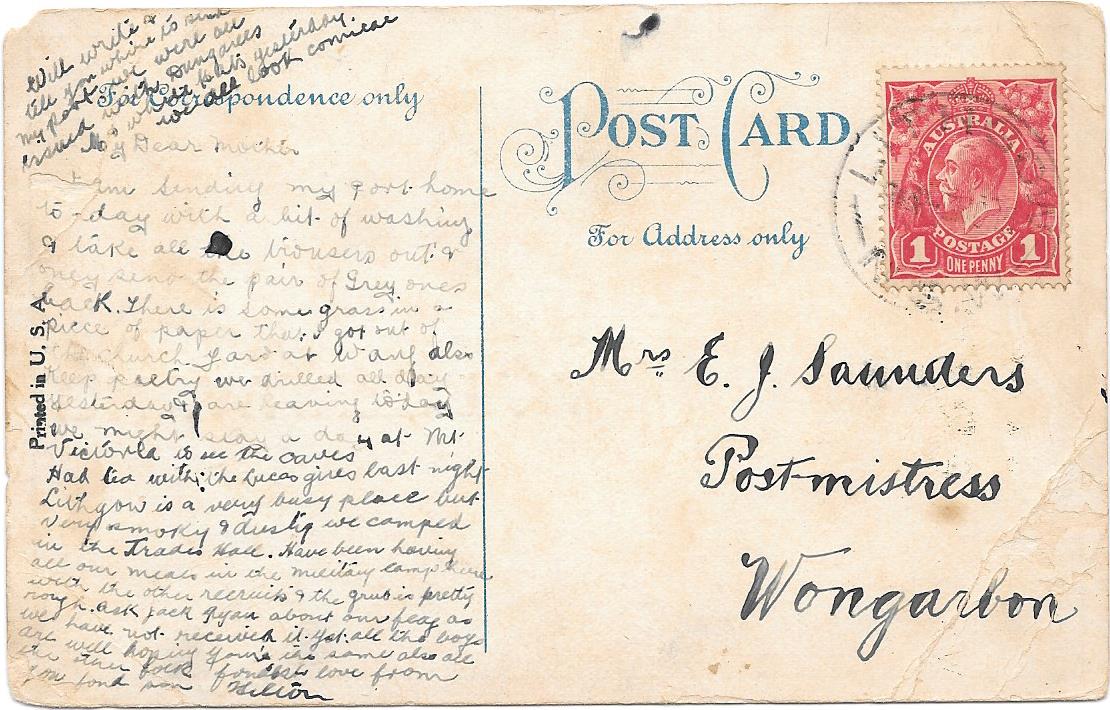 Will write &
tell you where to send
my port we were all
issued with Dungarees
& white hats yesterday.
we all look comical
For Correspondence only
My Dear Mother
I am sending my port home
to-day with a bit of washing
& take all the trousers out &
only send the pair of Grey ones
back. There is some grass in a
piece of paper that I got out of
the Church Yard at Wang also
keep poetry we drilled all day
yesterday & are leaving to-day
we might stay a day at Mt
Victoria to see the caves
Had tea with the Lucas girls last night
Lithgow is a very busy place but
very smoky & dusty we camped
in the Trades Hall. Have been having
all our meals in the military camp here
with the other recruits & the grub is pretty
rough. ask Jack Ryan about our flag as
we have not received it yet. all the boys
are well hoping you're the same also all
the other folk fondest love from
your fond son Hilton
Printed in U. S. A.
POST CARD
For Address only
AUSTRALIA
POSTAGE
1 ONE PENNY 1
Mrs E. J. Saunders
Postmistress
Wongarbon